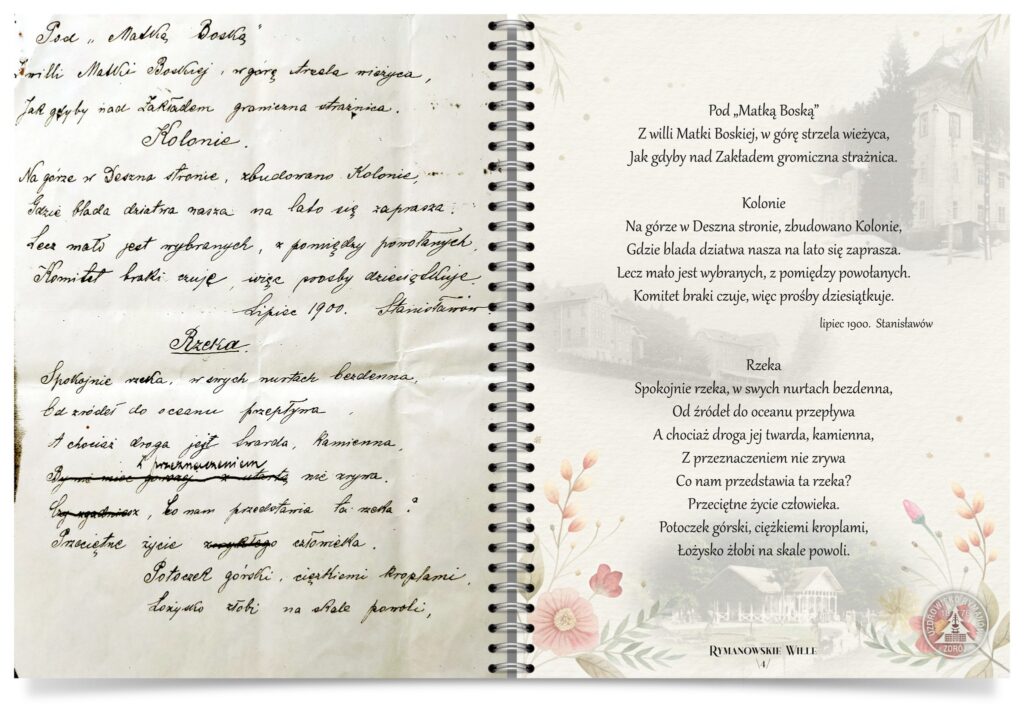 Pod „Matką Boską"
willi Matki Boskiej, w górę strzela wieżyca,
Jak gdyby nad Zakładem graniczna strażnica.
Kolonie.
Na górze w Deszna stronie, zbudowano Kolonie,
Gdzie blada dziatwa nasza na lato się zaprasza.
Lecz mało jest wybranych, z pomiędzy powołanych,
Komitet braki czuje, więc prosby
Lipiec 1900. Stanisławów.
Rzeka.
Spokojnie rzeka, w swych nurtach bezdenna,
Od źródeł do oceanu przepływa
A chociaż droga jej twarda, kamienna,
Z przeznaczeniem
nie zrywa.
Co nam przedstawia ta rzeka?
Przeciętne życie człowieka.
Potoczek górski, ciężkiemi kroplami,
Łożysko żłobi na skale powoli,
Pod „Matką Boską”
Z willi Matki Boskiej, w górę strzela wieżyca,
Jak gdyby nad Zakładem gromiczna strażnica.
Kolonie
Na górze w Deszna stronie, zbudowano Kolonie,
Gdzie blada dziatwa nasza na lato się zaprasza.
Lecz mało jest wybranych, z pomiędzy powołanych.
Komitet braki czuje, więc prośby dziesiątkuje.
lipiec 1900. Stanisławów
Rzeka
Spokojnie rzeka, w swych nurtach bezdenna,
Od źródeł do oceanu przepływa
A chociaż droga jej twarda, kamienna,
Z przeznaczeniem nie zrywa
Co nam przedstawia ta rzeka?
Przeciętne życie człowieka.
Potoczek górski, ciężkiemi kroplami,
Łożysko żłobi na skale powoli.
Rymanowskie Wille
\4/
UZDROWISKO RYMANÓW
1876
ZDRÓJ